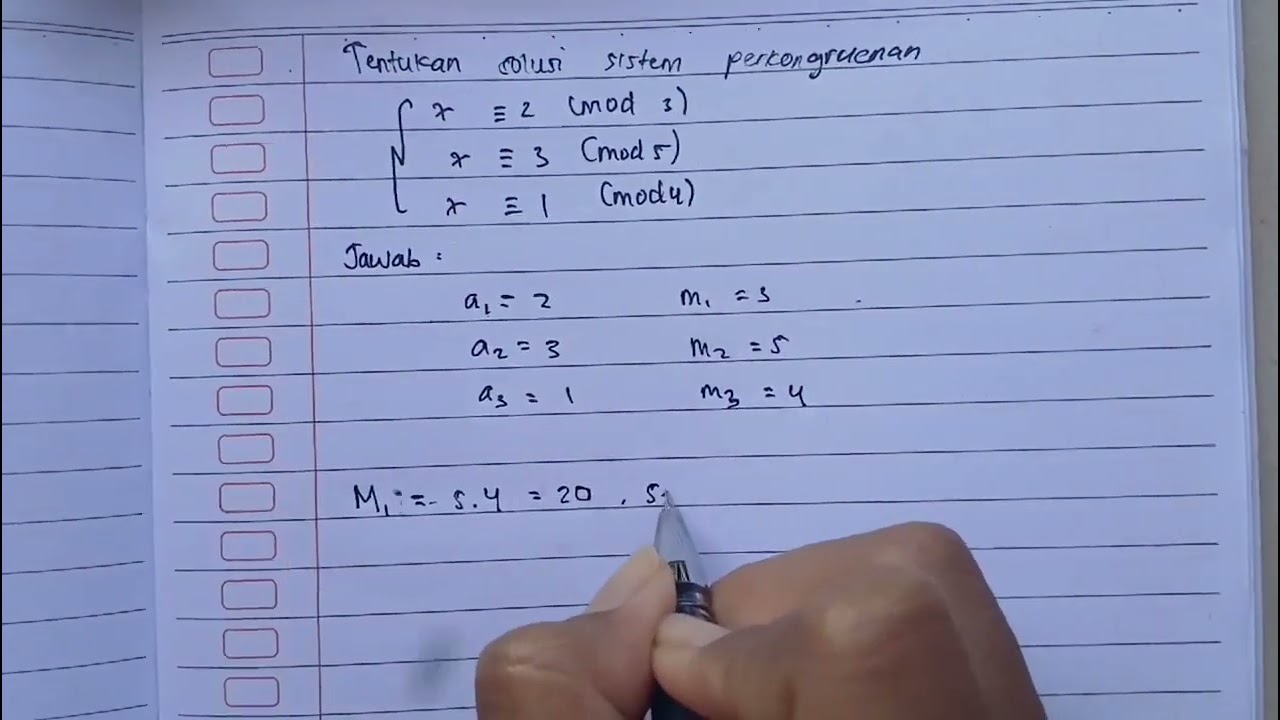 Tentukan solusi sistem perkongruenan
x ≡ 2 (mod 3)
x ≡ 3 (mod 5)
x ≡ 1 (mod 4)
Jawab :
a₁ = 2 m₁ = 3
a₂ = 3 m₂ = 5
a₃ = 1 m₃ = 4
M₁ := 5.4 = 20 . s